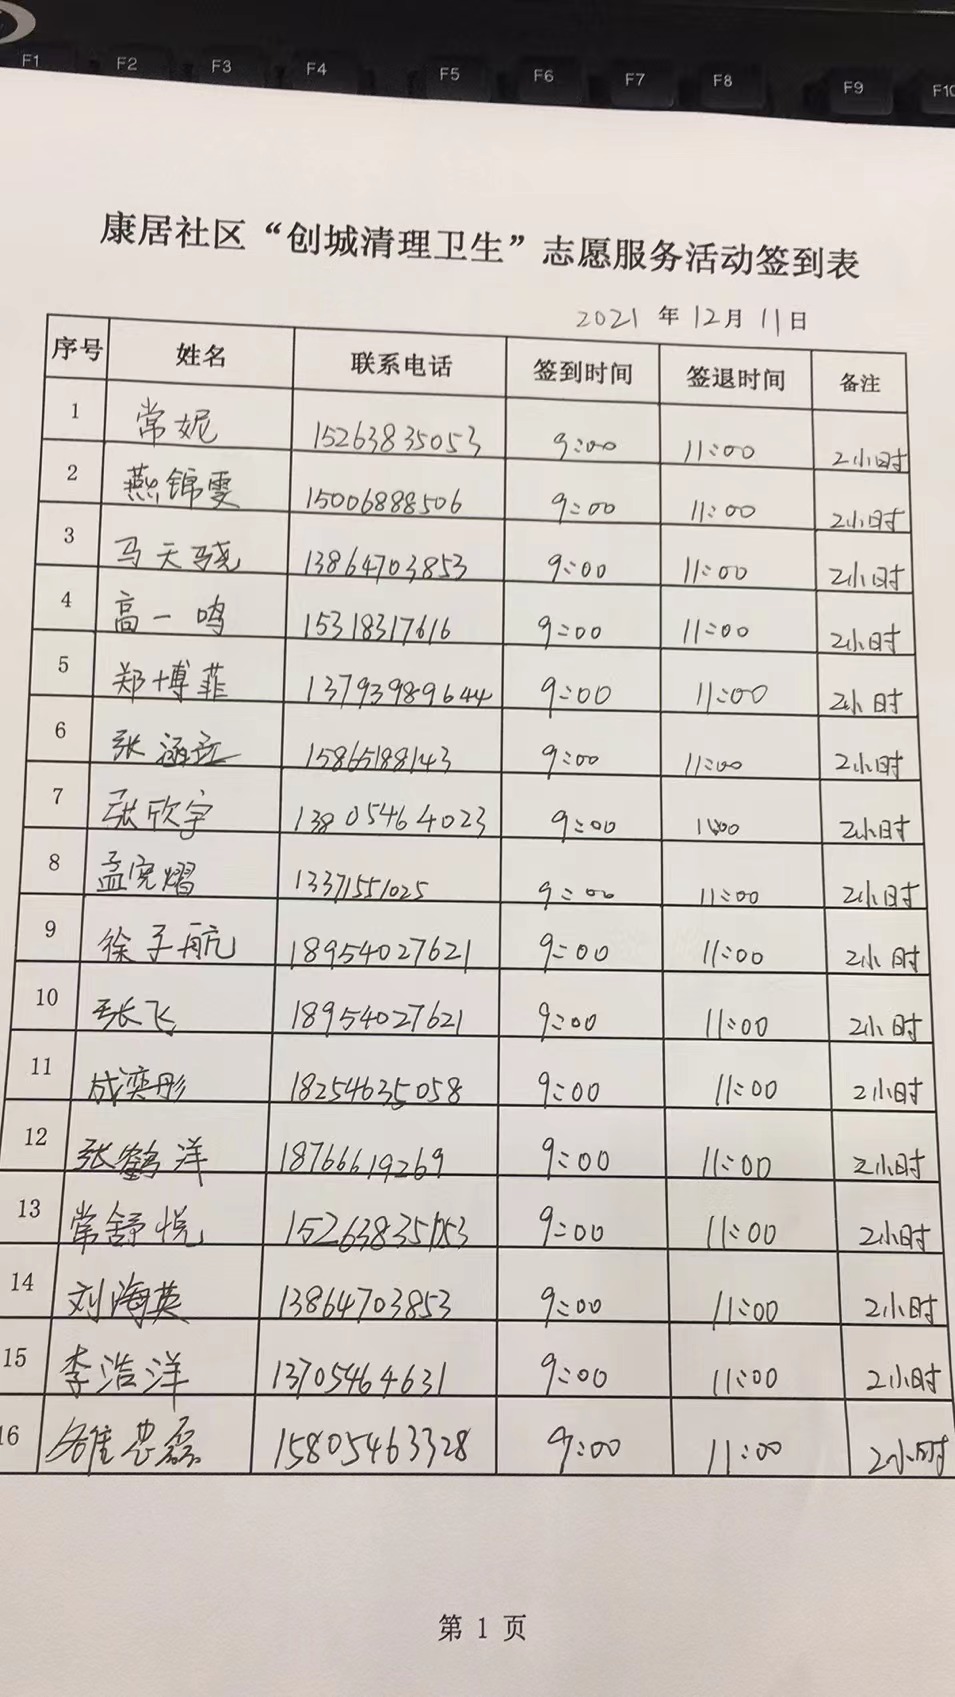 F1 F2 F3 F4 F5 F6 F7 F8 F9 F10
康居社区“创城清理卫生”志愿服务活动签到表
2021 年 12月 11日
序号 姓名 联系电话 签到时间 签退时间 备注
1 常妮 15263835053 9:00 11:00 2小时
2 燕锦雯 15006888506 9:00 11:00 2小时
3 马天骁 13864703853 9:00 11:00 2小时
4 高一鸣 15318317616 9:00 11:00 2小时
5 郑博菲 13793989644 9:00 11:00 2小时
6 张涵 15865188143 9:00 11:00 2小时
7 张欣宇 13805464023 9:00 11:00 2小时
8 孟宪熠 13371551025 9:00 11:00 2小时
9 徐子航 18954027621 9:00 11:00 2小时
10 张飞 18954027621 9:00 11:00 2小时
11 成奕彤 18254635058 9:00 11:00 2小时
12 张鹤洋 18766619269 9:00 11:00 2小时
13 常舒悦 9:00 11:00 2小时
14 刘海英 13864703853 9:00 11:00 2小时
15 李浩洋 13705464631 9:00 11:00 2小时
16 15805463328 9:00 11:00 2小时
第 1 页